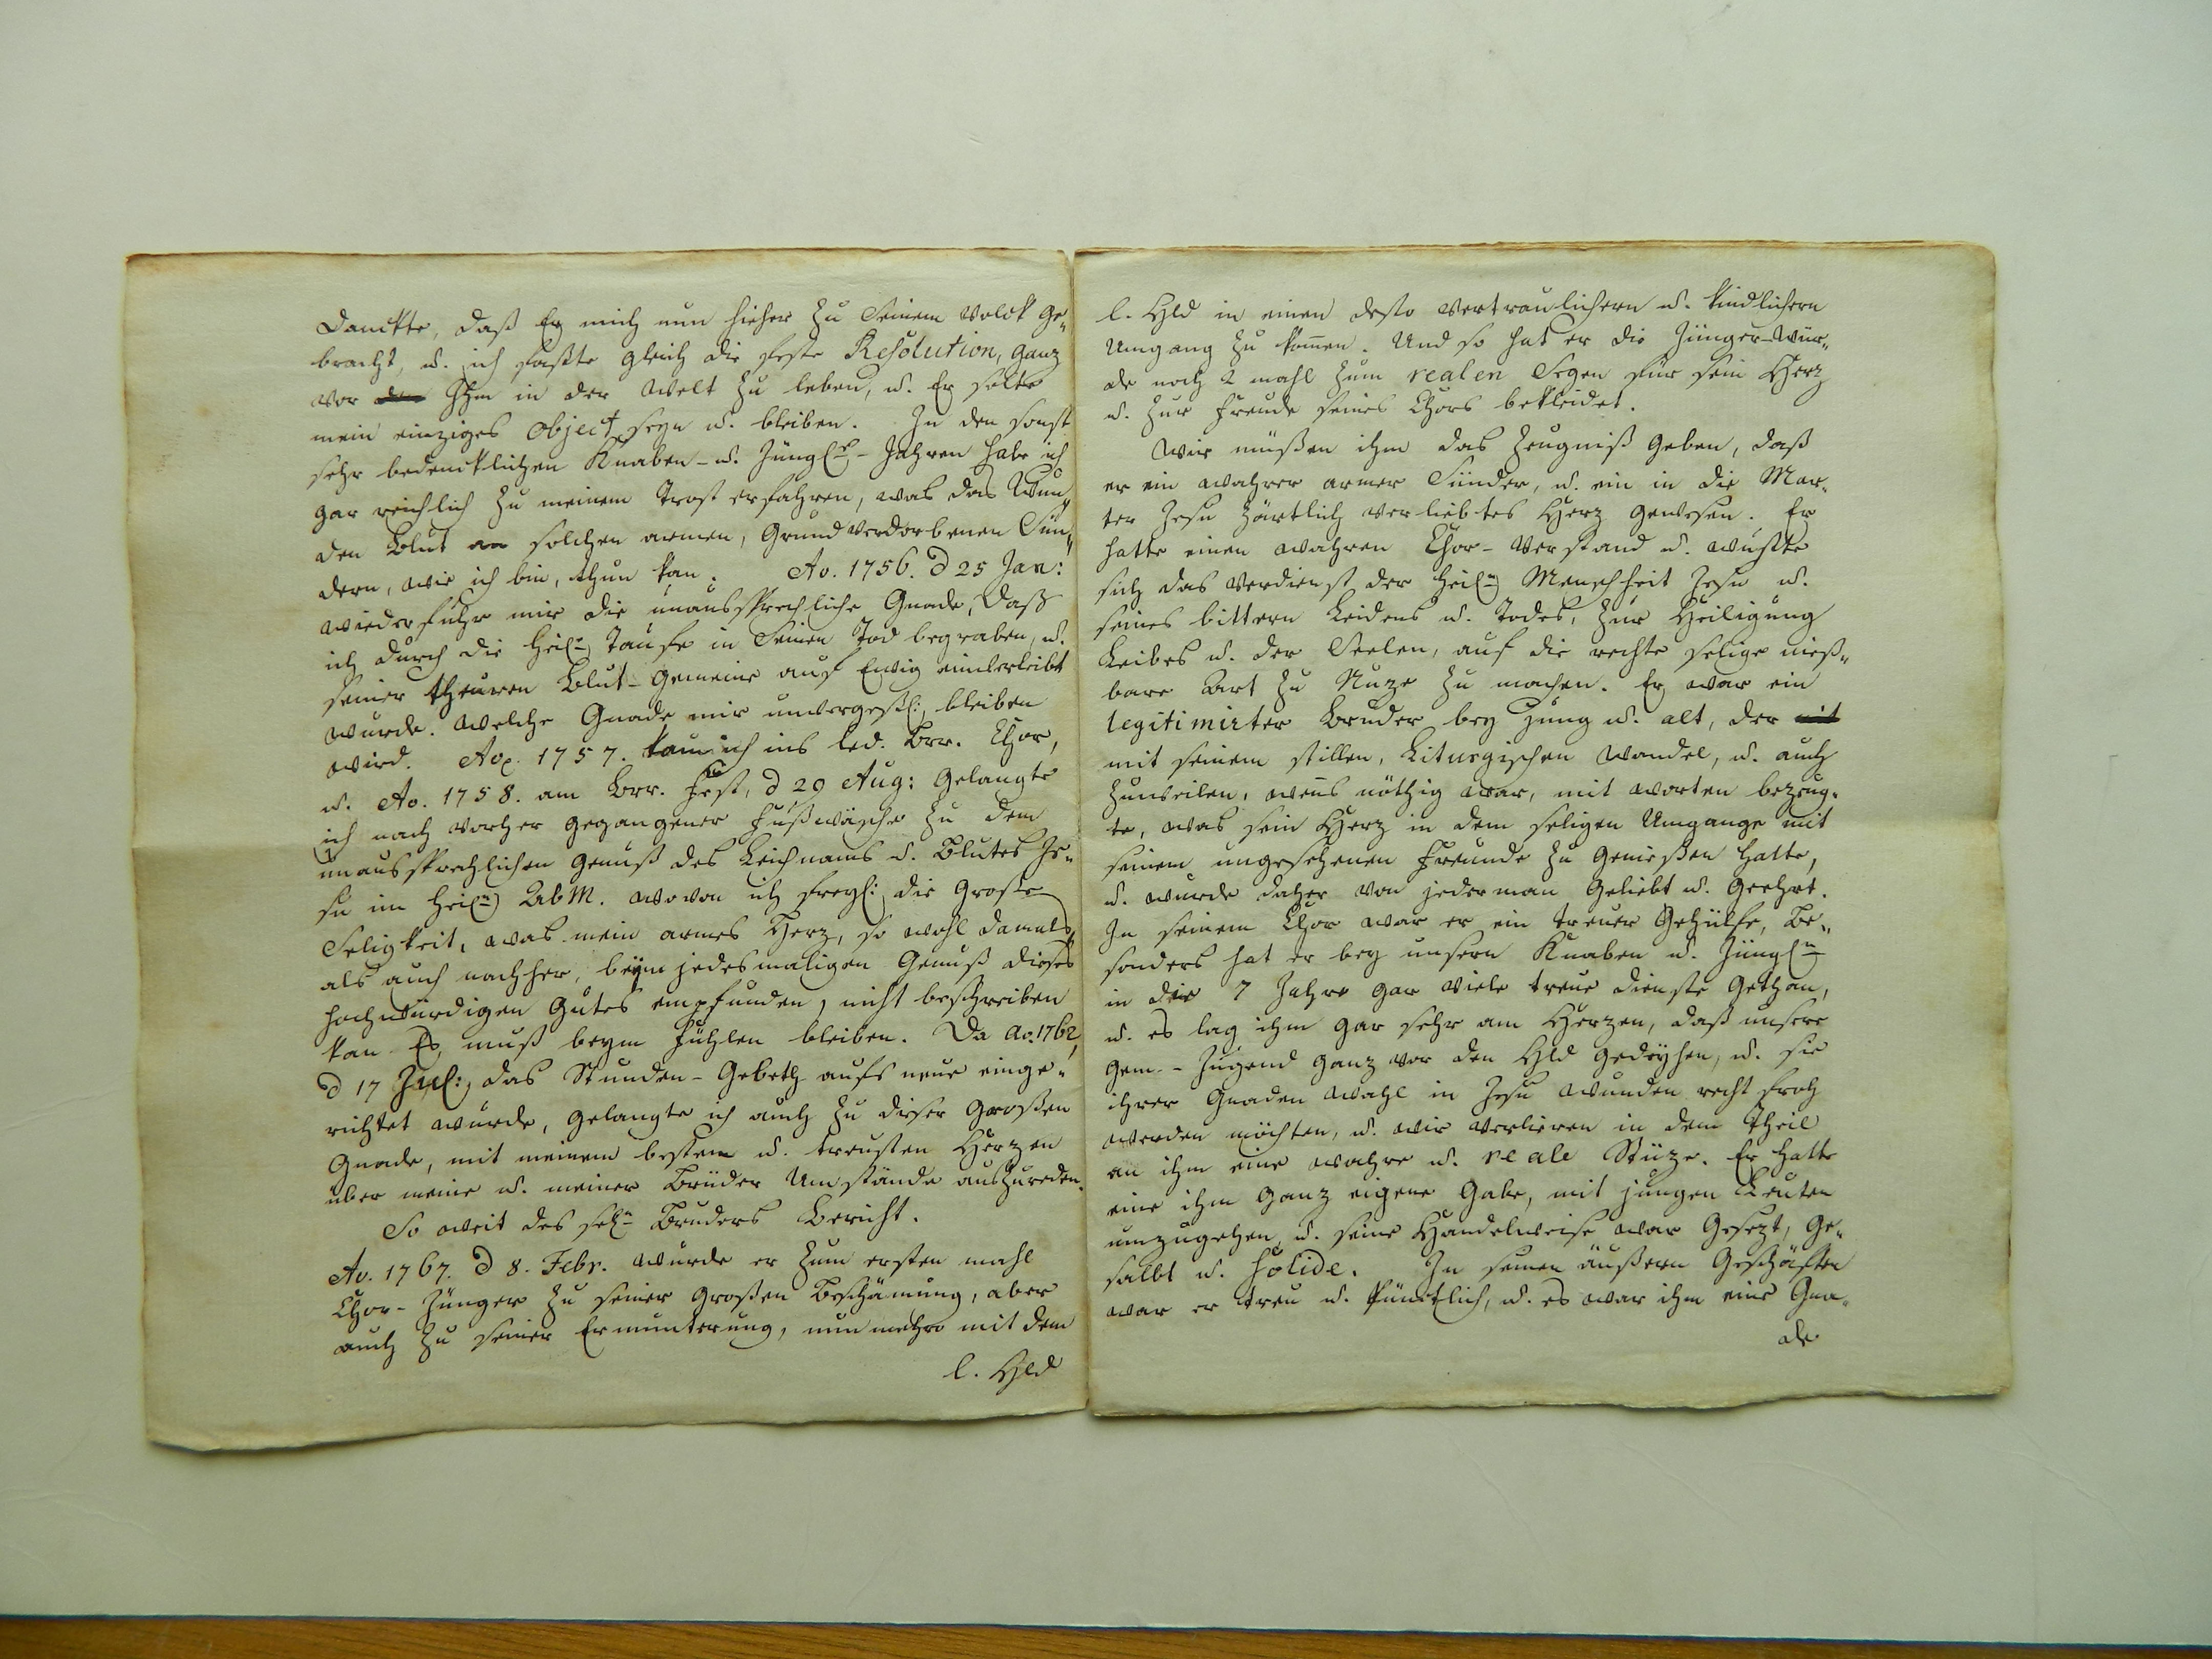 danckte, daß Er mich nun hieher zu Seinem Volck ge„
bracht, u. ich faßte gleich die feste Resolution, ganz
vor Ihm in der Welt zu leben, u. Er solte
mein einziges Object seyn u. bleiben. In den sonst
sehr bedencklichen Knaben- u. Jüngl.- Jahren habe ich
gar reichlich zu meinem Trost erfahren, was das Wun„
den Blut an solchen armen, Grundverdorbenen Sün„
dern, wie ich bin, thun kan. Ao. 1756. d 25 Jan:
wiederfuhr mir die unaussprechliche Gnade, daß
ich durch die heil. Taufe in Seinen Tod begraben, u.
seiner theuren Blut-Gemeine auf Ewig einverleibt
wurde. Welche Gnade mir unvergeßl: bleiben
wird. Ao. 1757. kam ich ins led. Brr. Chor,
u. Ao. 1758. am Brr. Fest, d 29 Aug: Gelangte
ich nach vorher gegangener Fußwäsche zu dem
unaussprechlichen Genuß des Leichnams u. Blutes Je„
su im heil. AbM. wovon ich freyl: die Große
Seligkeit, was mein armes Herz, so wohl damals,
als auch nachher, beym jedesmaligen Genuß dieses
hochwürdigen Gutes empfunden, nicht beschreiben
kan Es muß beym Fühlen bleiben. Da Ao. 1762,
d 17 Jul: das Stunden-Gebeth aufs neue einge„
richtet wurde, gelangte ich auch zu dieser Großen
Gnade, mit meinem bestem u. treusten Herzen
über meine u. meiner Brüder Umstände auszureden.
So weit des sel. Bruders Bericht.
Ao. 1767. d 8. Febr. wurde er zum ersten mahl
Chor-Jünger zu seiner Großen Beschämung, aber
auch zu seiner Ermunterung, nunmehro mit dem
l. Hld
l. Hld in einen desto vertraulichern u. kindlichern
Umgang zu kom̄en. Und so hat er die Jünger-Wür„
de noch 2 mahl zum realen Segen für sein Herz
u. zur Freude seines Chors bekleidet.
Wir müßen ihm das Zeugniß geben, daß
er ein wahrer armer Sünder, u. ein in die Mar„
ter Jesu zärtlich verliebtes Herz gewesen. Er
hatte einen wahren Chor-Verstand u. wußte
sich das Verdienst der heil. Menschheit Jesu u.
seines bittern Leidens u. Todes, zur Heiligung
Leibes u. der Seelen, auf die rechte selige nieß„
bare Art zu Nuze zu machen. Er war ein
legitimirter Bruder bey Jung u. alt, der mit
mit seinem stillen, Liturgischen Wandel, u. auch
zuweilen, wens nöthig war, mit worten bezeug„
te, was sein Herz in dem seligen Umgange mit
seinem ungesehenen Freunde zu Genießen hatte,
u. wurde daher von jederman Geliebt u. Geehrt.
In seinem Chor war er ein treuer Gehülfe, Be„
sonders hat er bey unsern Knaben u. Jüngl.
in die 7 Jahre gar viele treue dienste Gethan,
u. es lag ihm gar sehr am Herzen, daß unsere
Gem-Jugend ganz vor den Hld gedeyhen, u. sie
ihrer Gnaden Wahl in Jesu Wunden recht froh
werden möchten, u. wir verlieren in dem Theil
an ihm eine wahre u. reale Stüze. Er hatte
eine ihm Ganz eigene Gabe, mit jungen Leuten
umzugehen, u. seine Handelweise war Gesezt, Ge„
salbt u. solide. In seinen äußern Geschäften
war er treu u. Pünctlich, u. es war ihm eine Gna„
de